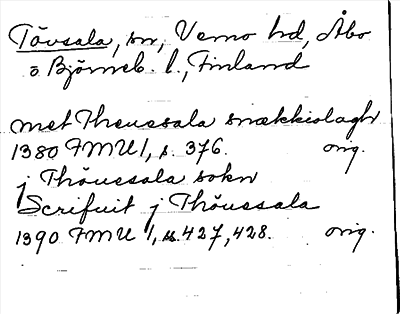 Tövsala, sn, Vemo hd, Åbo
o Björneb. l., Finland
met Theussala snækkiolagh
1380 FMU 1, s. 376. orig.
j Thöuesala sokn
Scrifuit j Thöuessala
1390 FMU 1, s. 427, 428. orig.